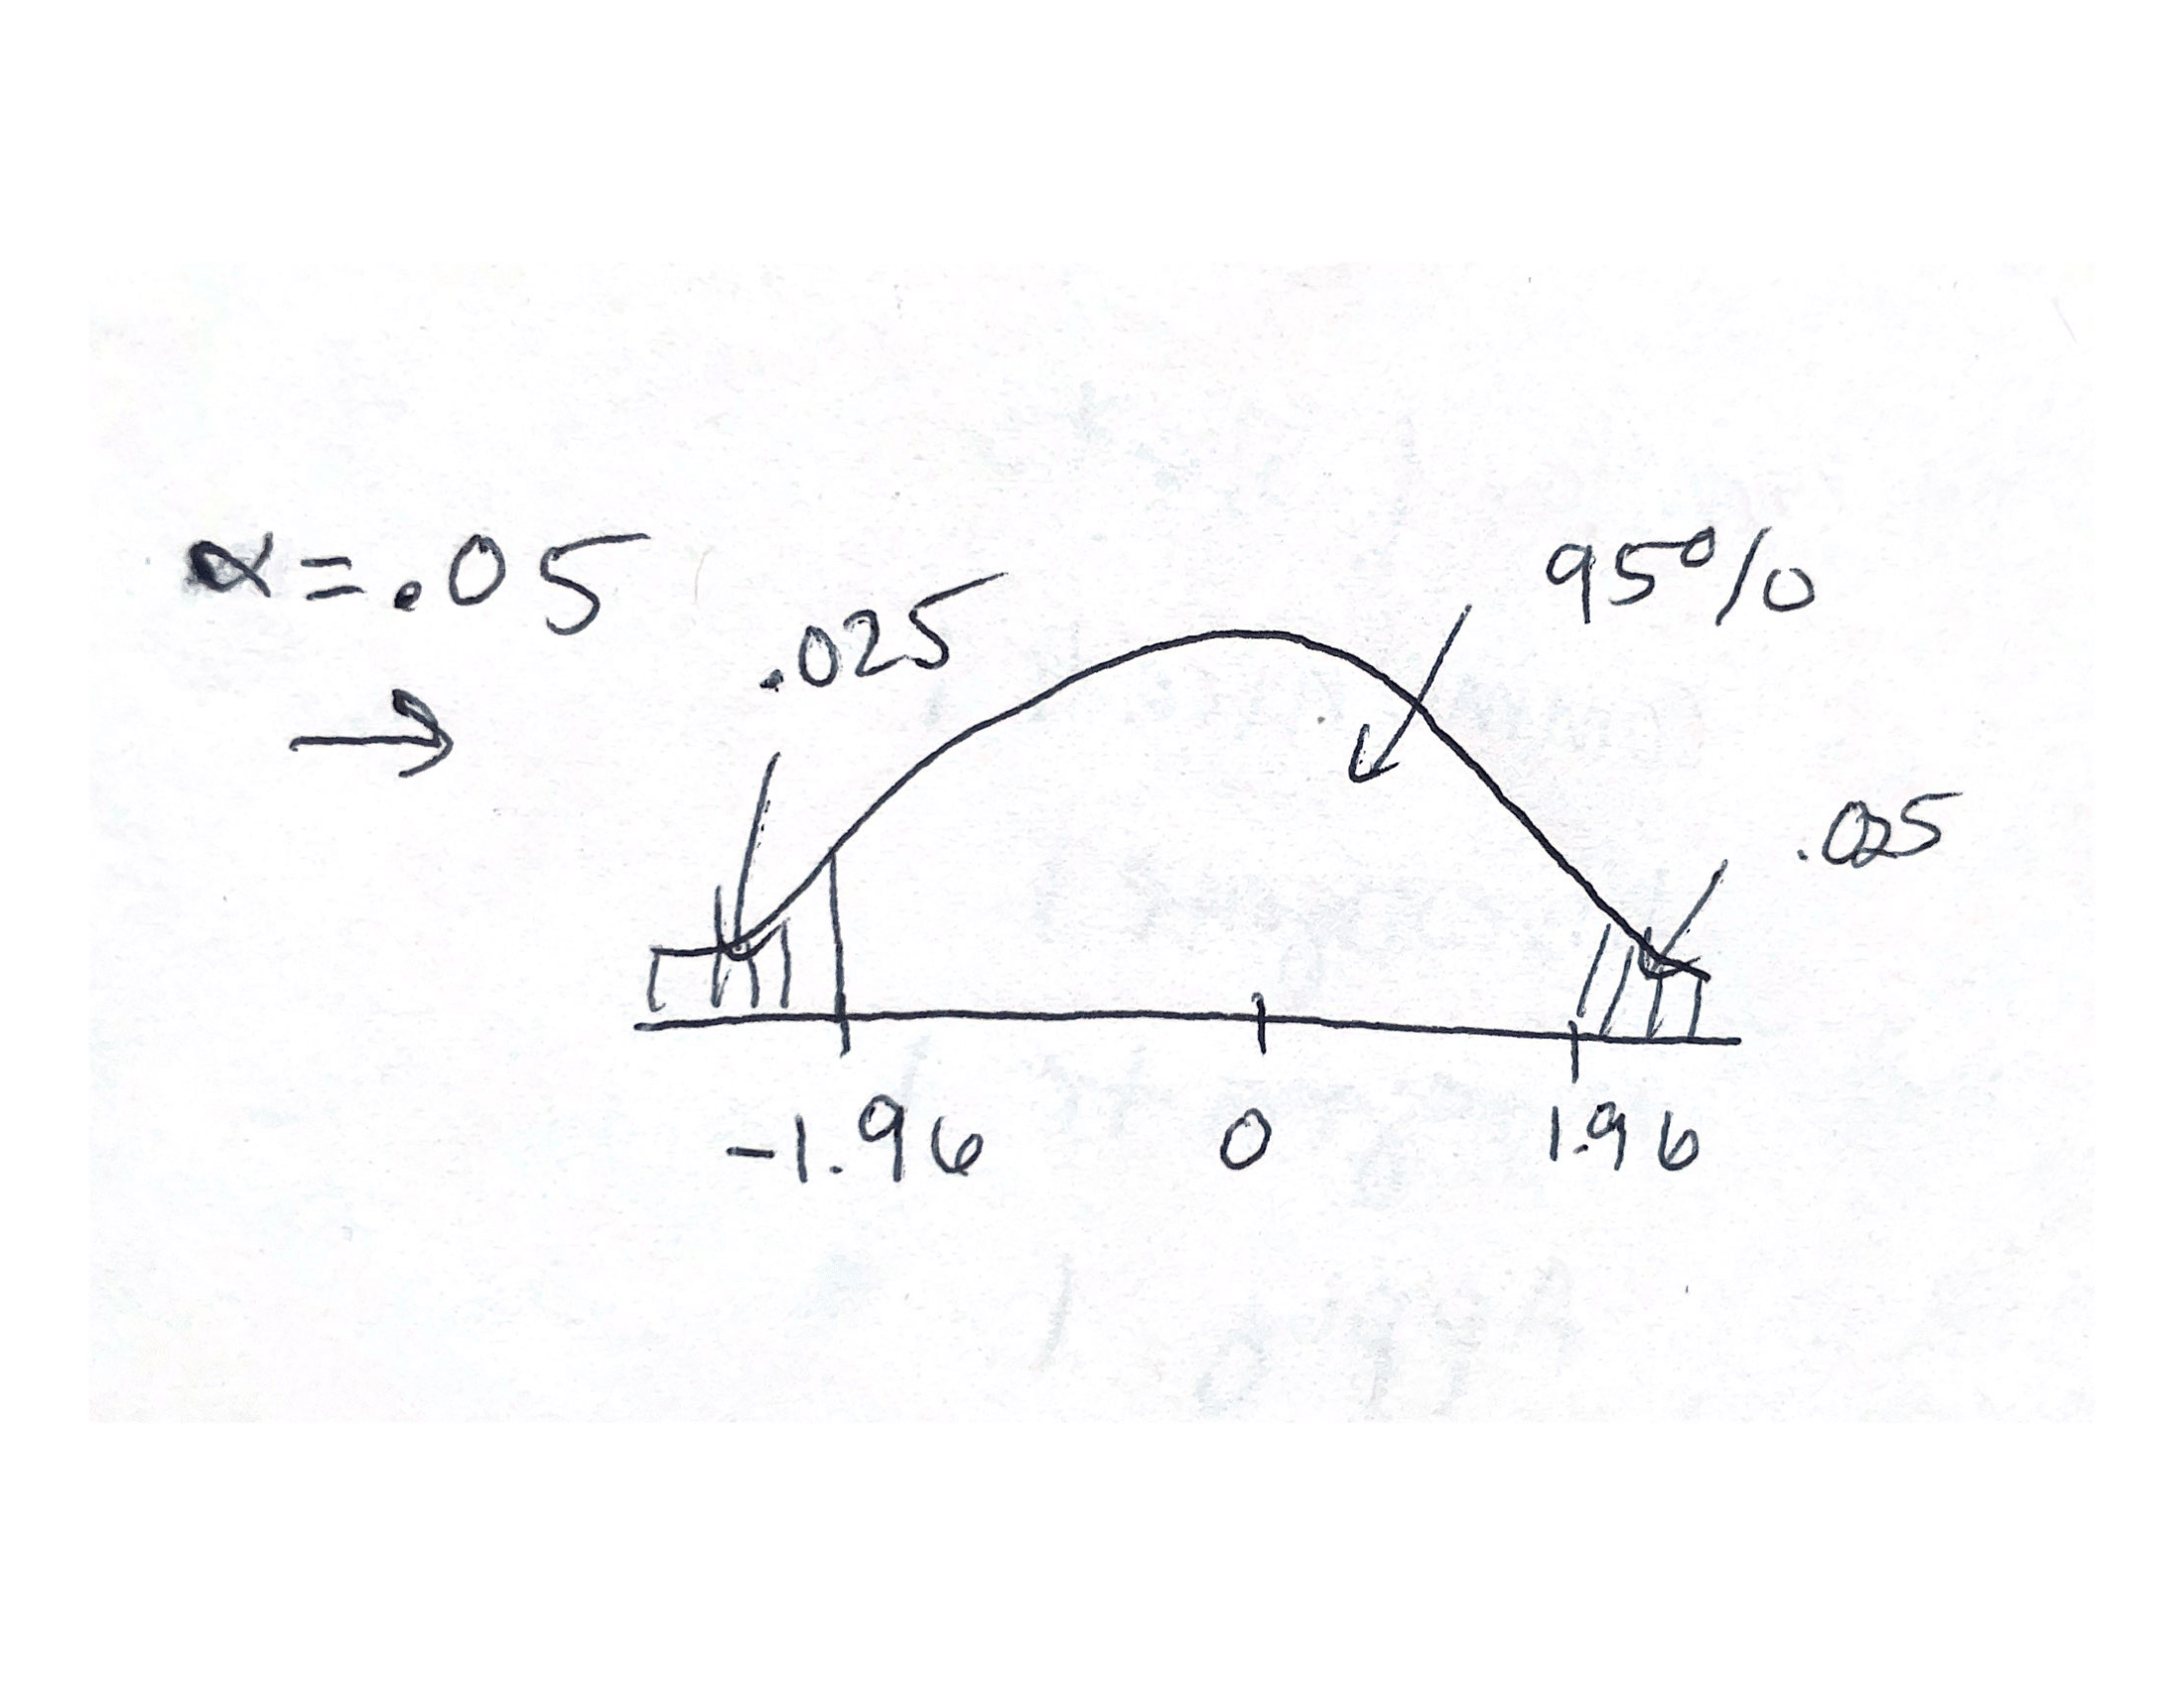 α = .05
.025
95%
→
.025
-1.96
0
1.96